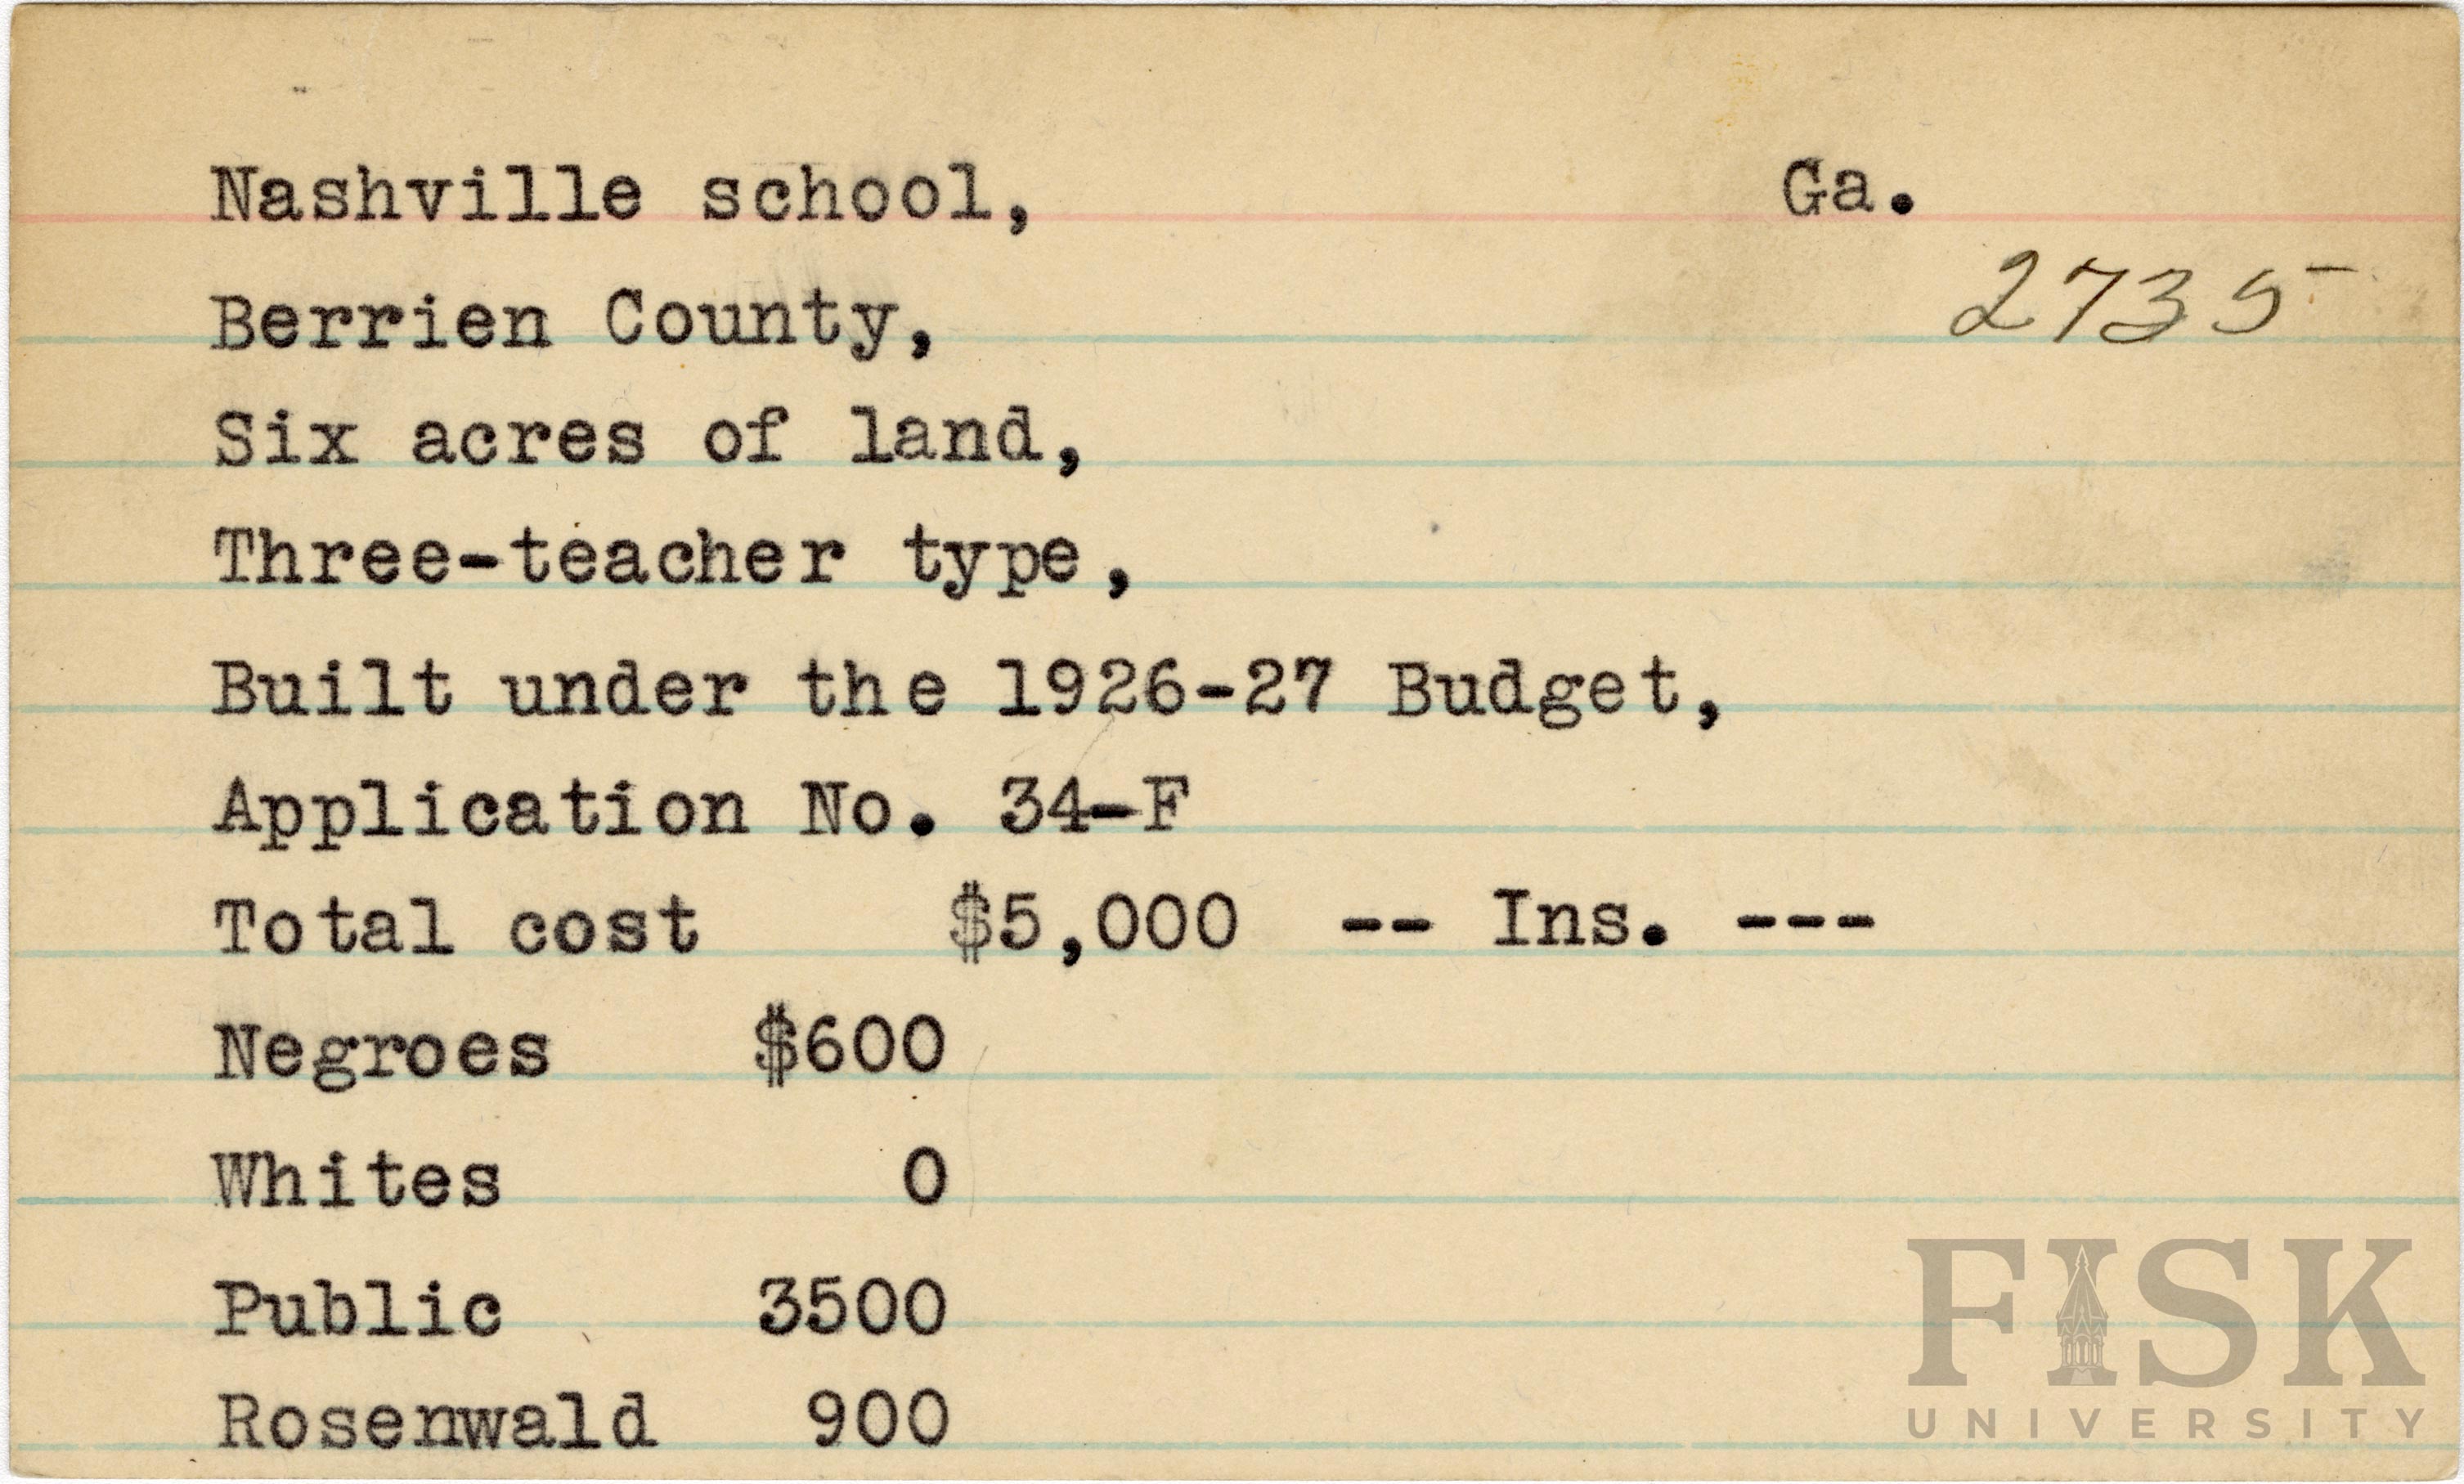 Nashville school, Ga.
2735
Berrien County,
Six acres of land,
Three-teacher type,
Built under the 1926-27 Budget,
Application No. 34-F
Total cost $5,000 -- Ins. ---
Negroes $600
Whites 0
Public 3500
Rosenwald 900
FISK
UNIVERSITY